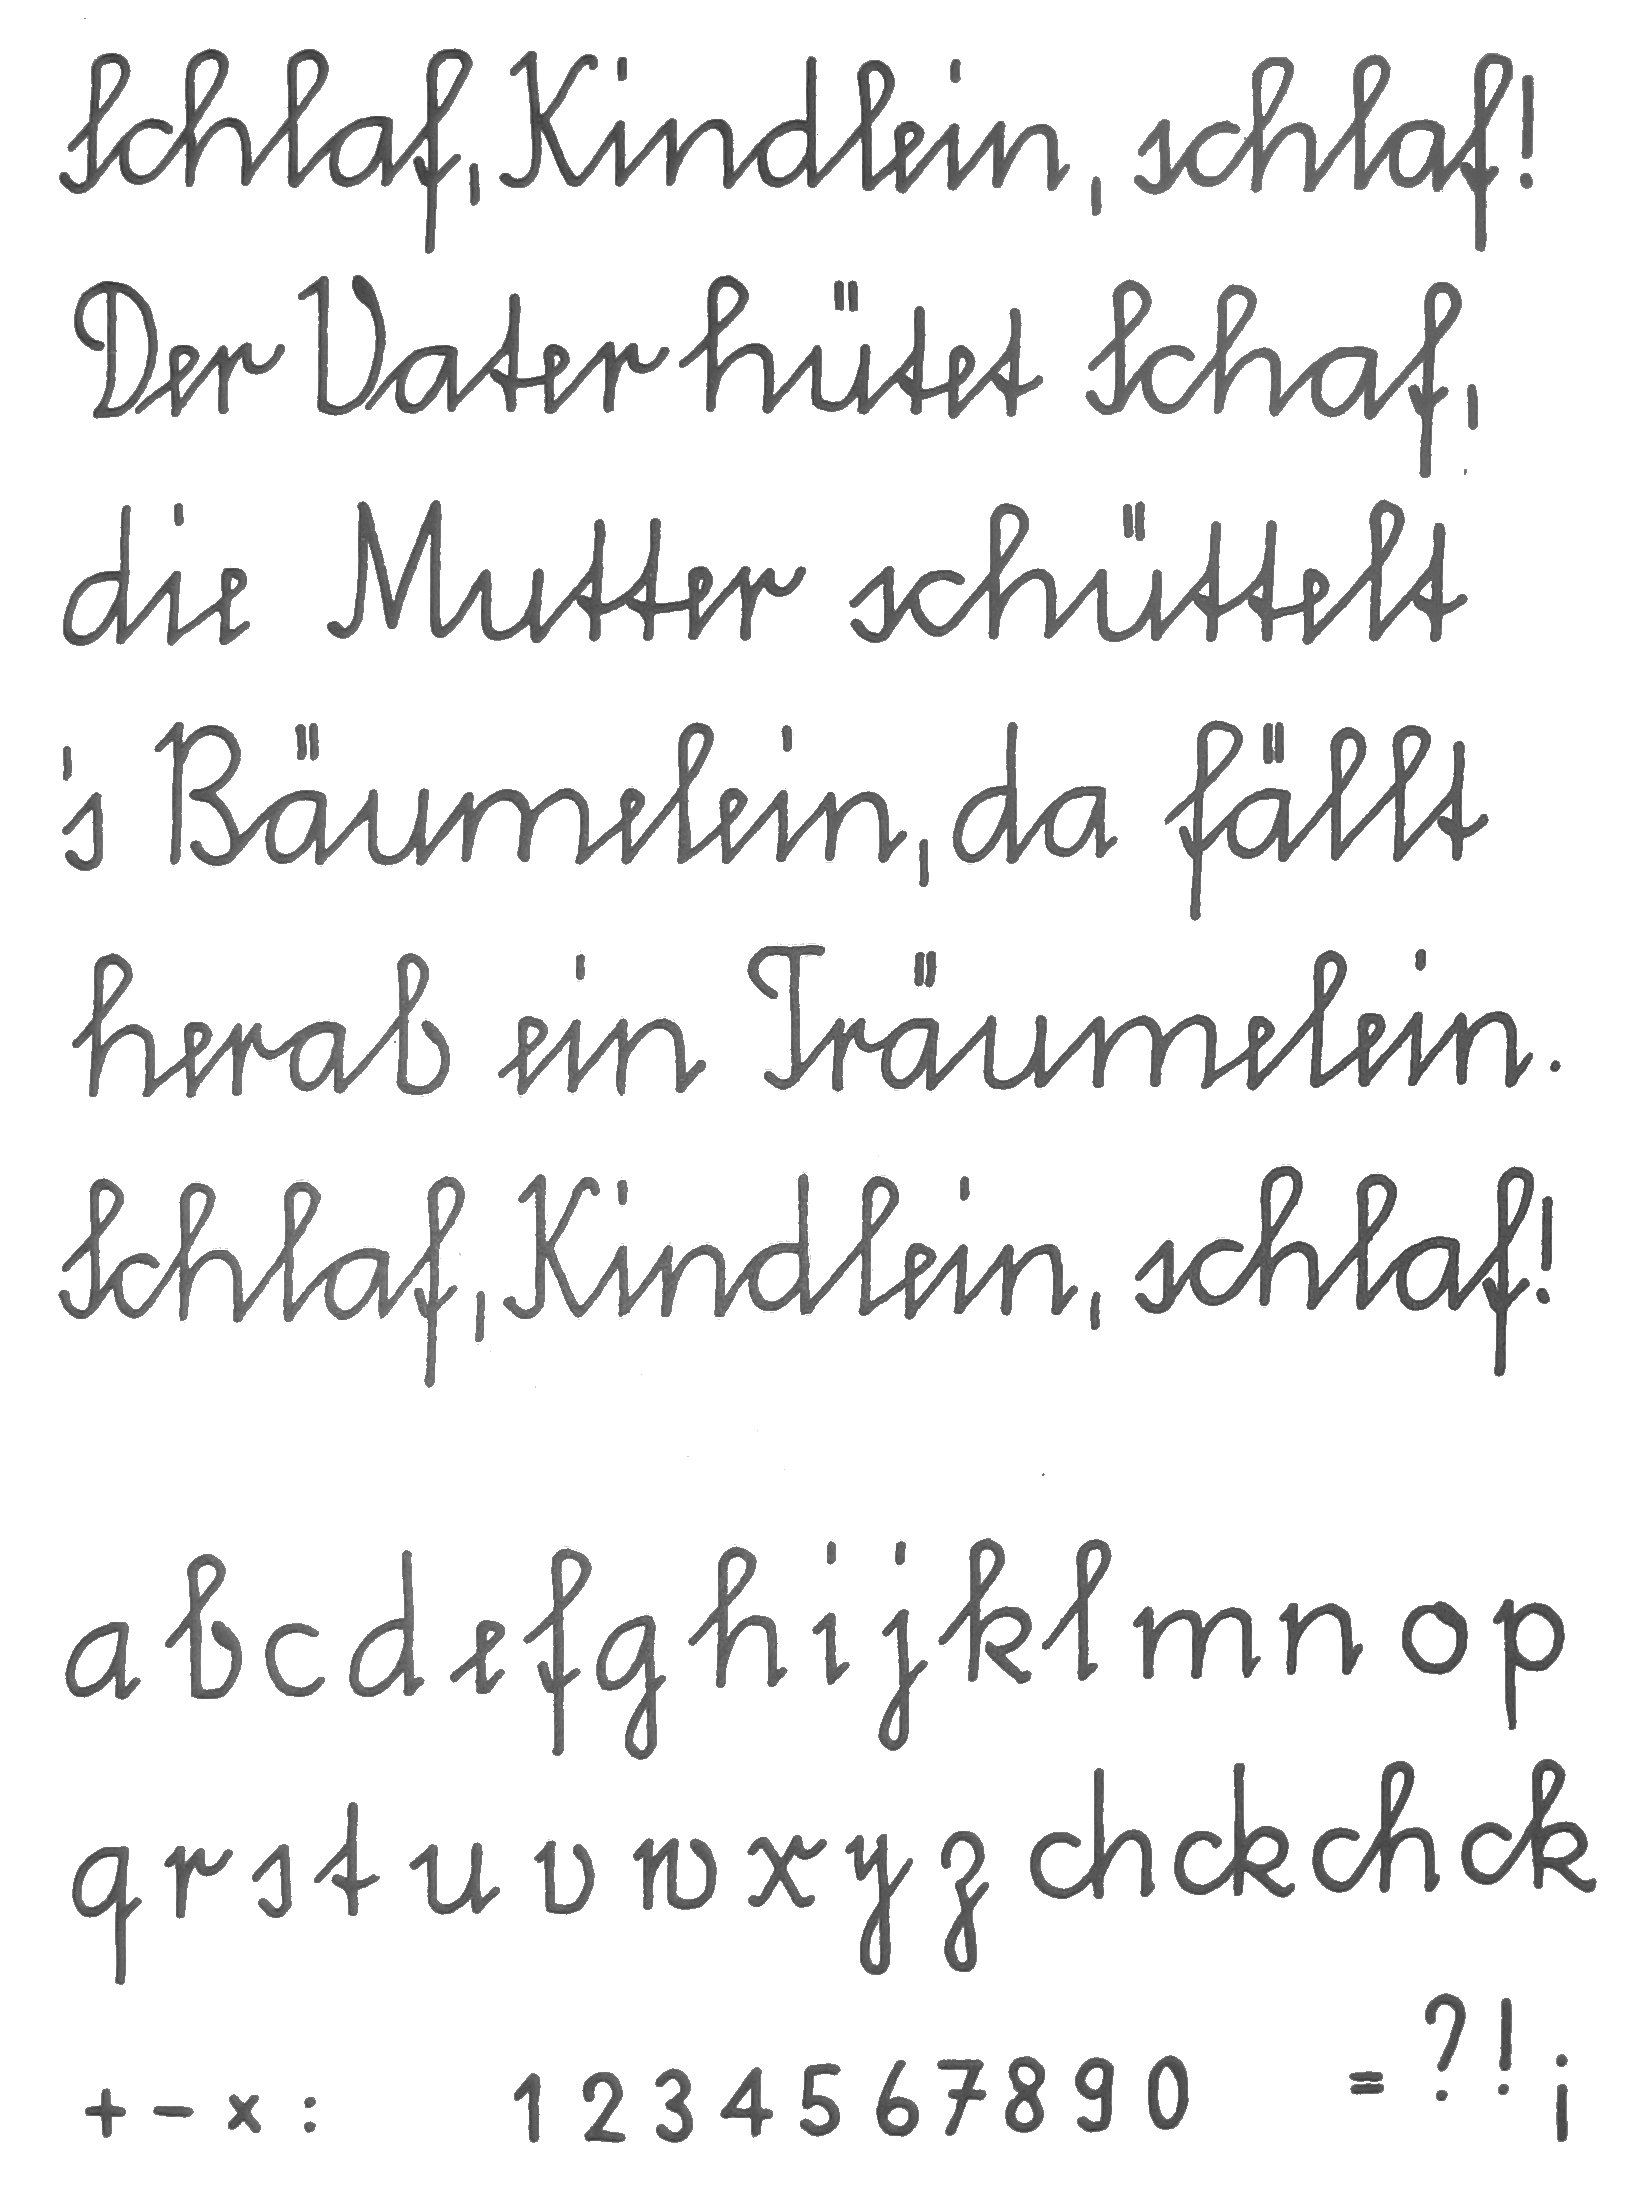 Schlaf, Kindlein, schlaf!
Der Vater hütet Schaf,
die Mutter schüttelt
's Bäumelein, da fällt
herab ein Träumelein.
Schlaf, Kindlein, schlaf!
a b c d e f g h i j k l m n o p
q r s t u v w x y z ch ck ch ck
+ - x : 1 2 3 4 5 6 7 8 9 0 = ? ! ;